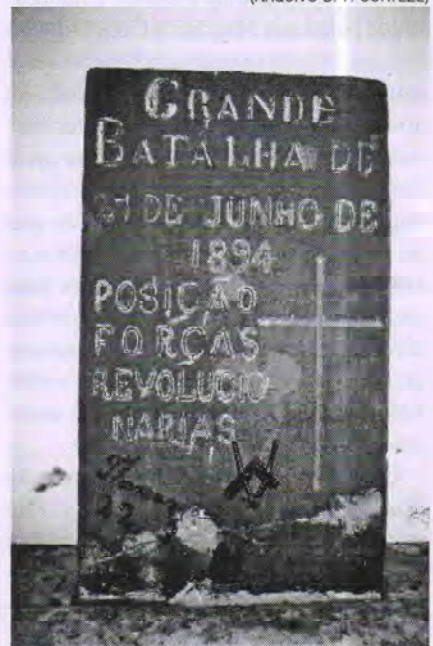 GRANDE
BATALHA DE
27 DE JUNHO DE
1894
POSIÇÃO
FORÇAS
REVOLUCIO
NARIAS